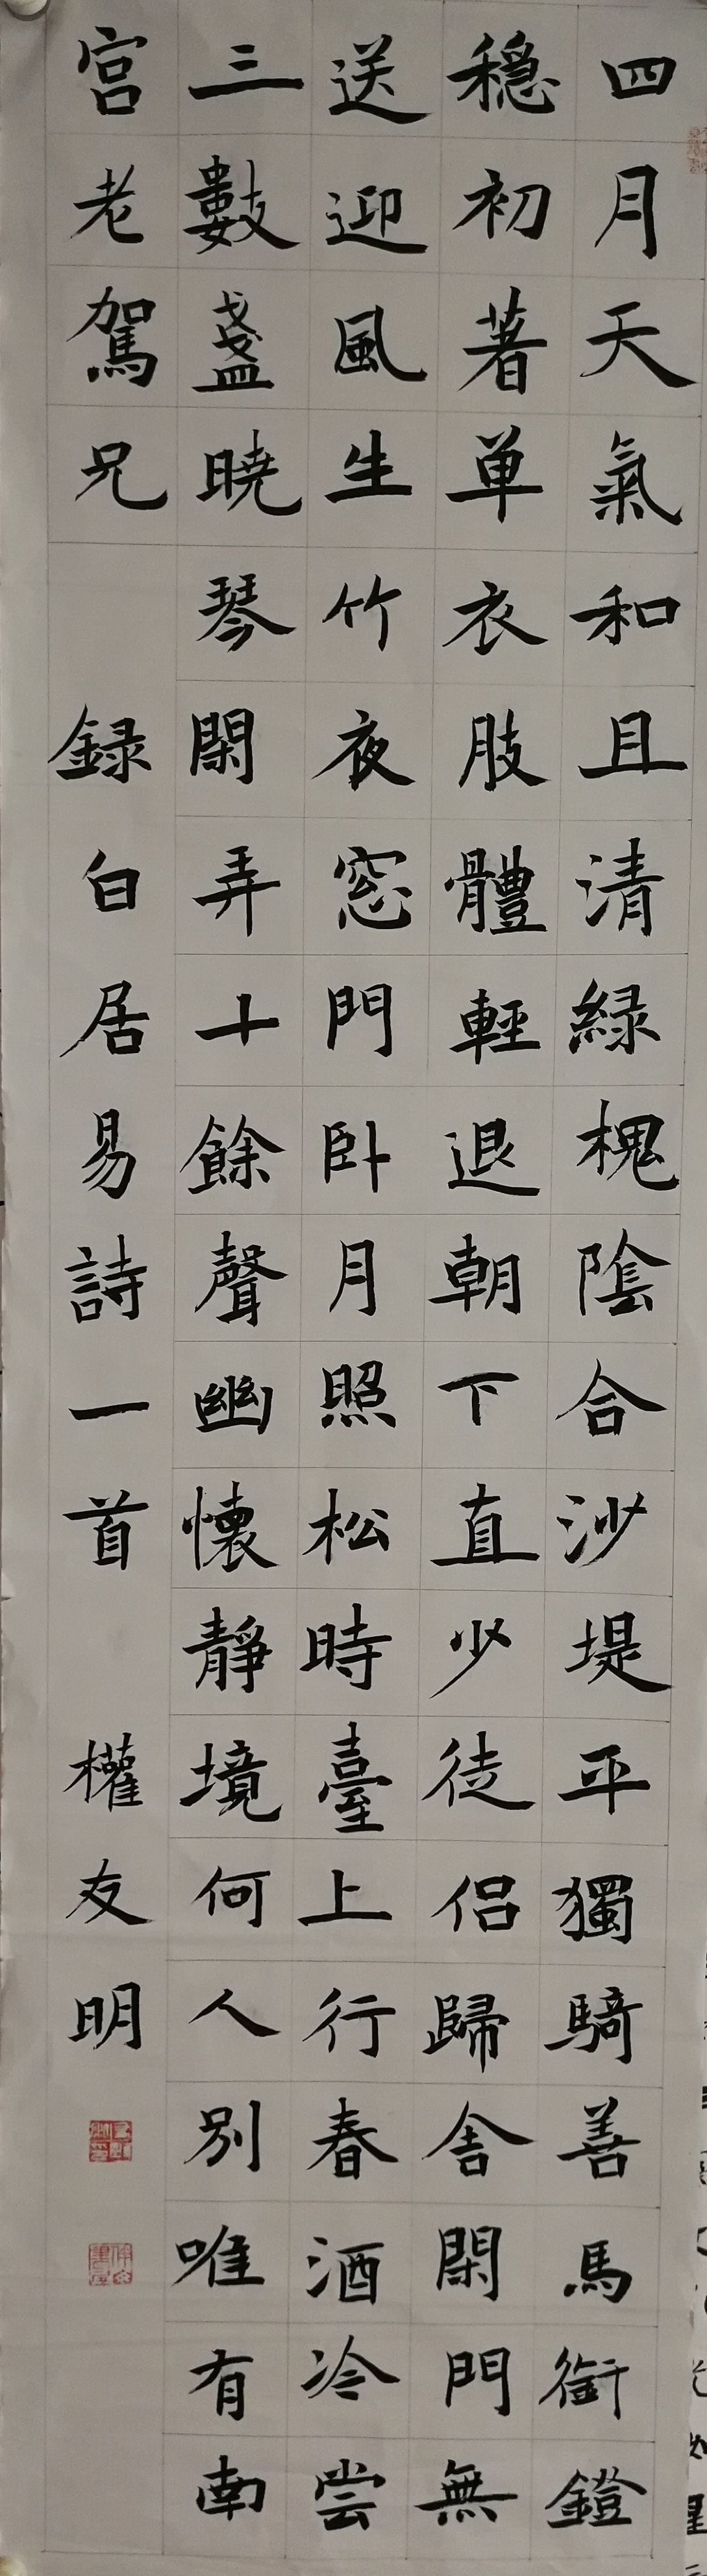 四月天氣和且清緑槐陰合沙堤平獨騎善馬銜鐙
穩初著单衣肢體輕退朝下直少徒侣歸舍閑門無
送迎風生竹夜窓門卧月照松時臺上行春酒冷尝
三數盞曉琴閑弄十餘聲幽懷静境何人别唯有南
宫老駕兄 録白居易詩一首 權友明